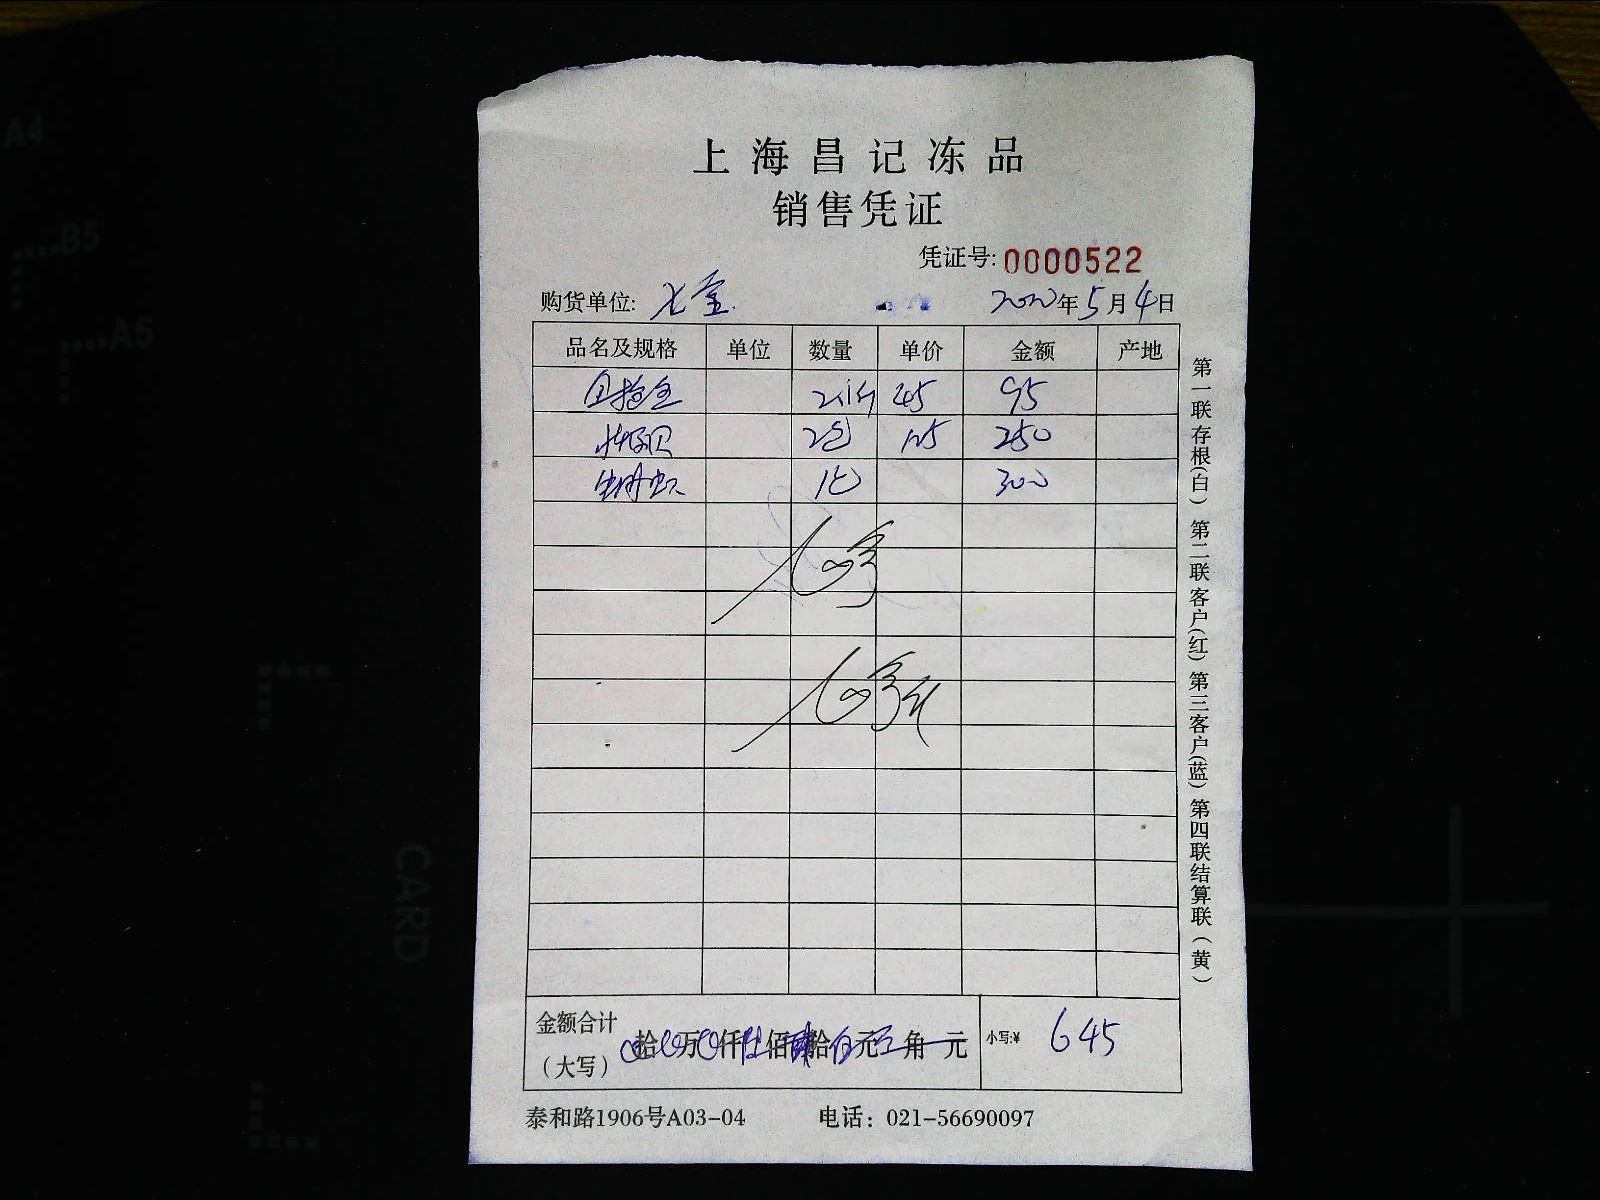 上海昌记冻品
销售凭证
凭证号:0000522
购货单位: 2020年5月4日
品名及规格 单位 数量 单价 金额 产地
45 95
2包 125 250
1包 300
金额合计
(大写) 拾 万 仟 佰 拾 元 角 元 小写:¥ 645
泰和路1906号A03-04 电话: 021-56690097
第一联存根(白) 第二联客户(红) 第三客户(蓝) 第四联结算联(黄)
A4
B5
A5
CARD